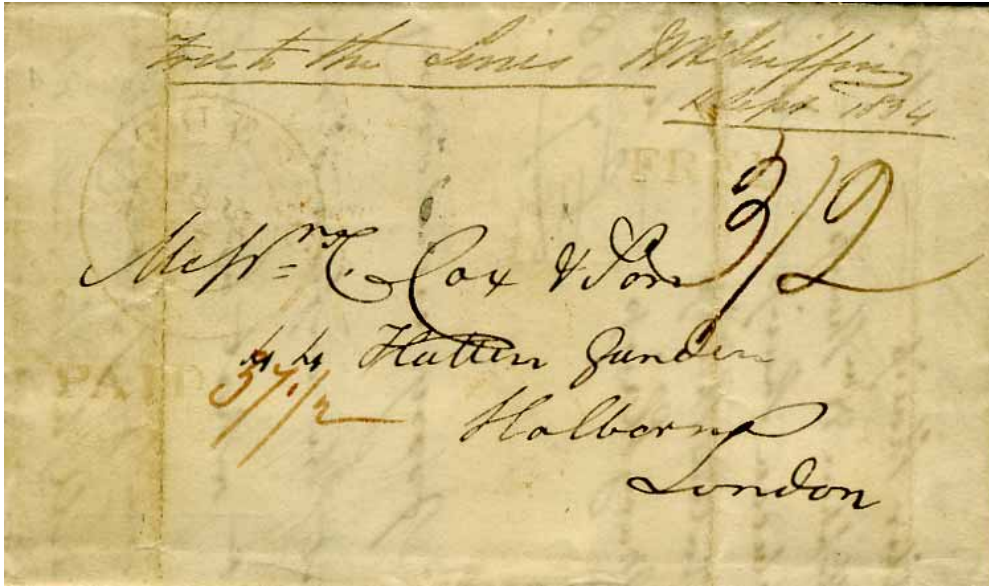 Free to the Lines W H Griffin
4 Sept 1834
FR
3/2
Messrs C. Cox & Son
44 Hatten Garden
PAID
37 1/2
Holborn
London